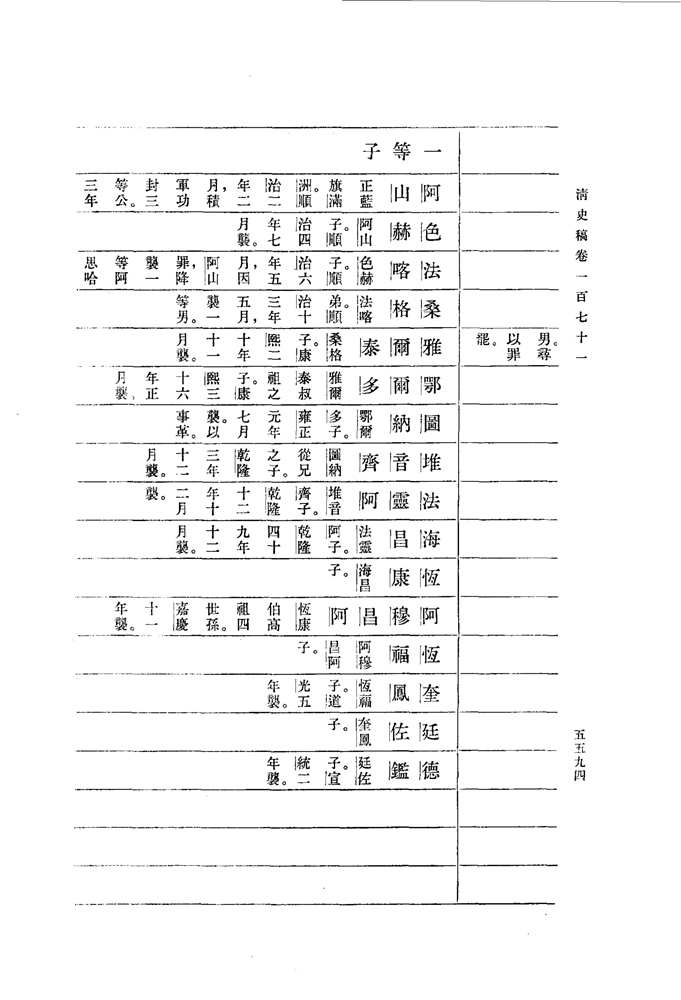 清史稿卷一百七十一
五五九四
男。尋以罪罷。
一等子
阿山 正藍旗滿洲。順治二年二月,積軍功封三等公。三年
色赫 阿山子。順治四年七月襲。
法喀 色赫子。順治六年五月,因阿山罪,降襲一等阿思哈
桑格 法喀弟。順治十三年五月,襲一等男。
雅爾泰 桑格子。康熙二十年十一月襲。
鄂爾多 雅爾泰叔祖之子。康熙三十六年正月襲。
圖納 鄂爾多子。雍正元年七月襲。以事革。
堆音齊 圖納從兄之子。乾隆三年十二月襲。
法靈阿 堆音齊子。乾隆十二年十二月襲。
海昌 法靈阿子。乾隆四十九年十二月襲。
恆康 海昌子。
阿穆昌阿 恆康伯高祖四世孫。嘉慶十一年襲。
恆福 阿穆昌阿子。
奎鳳 恆福子。道光五年襲。
廷佐 奎鳳子。
德鑑 廷佐子。宣統二年襲。